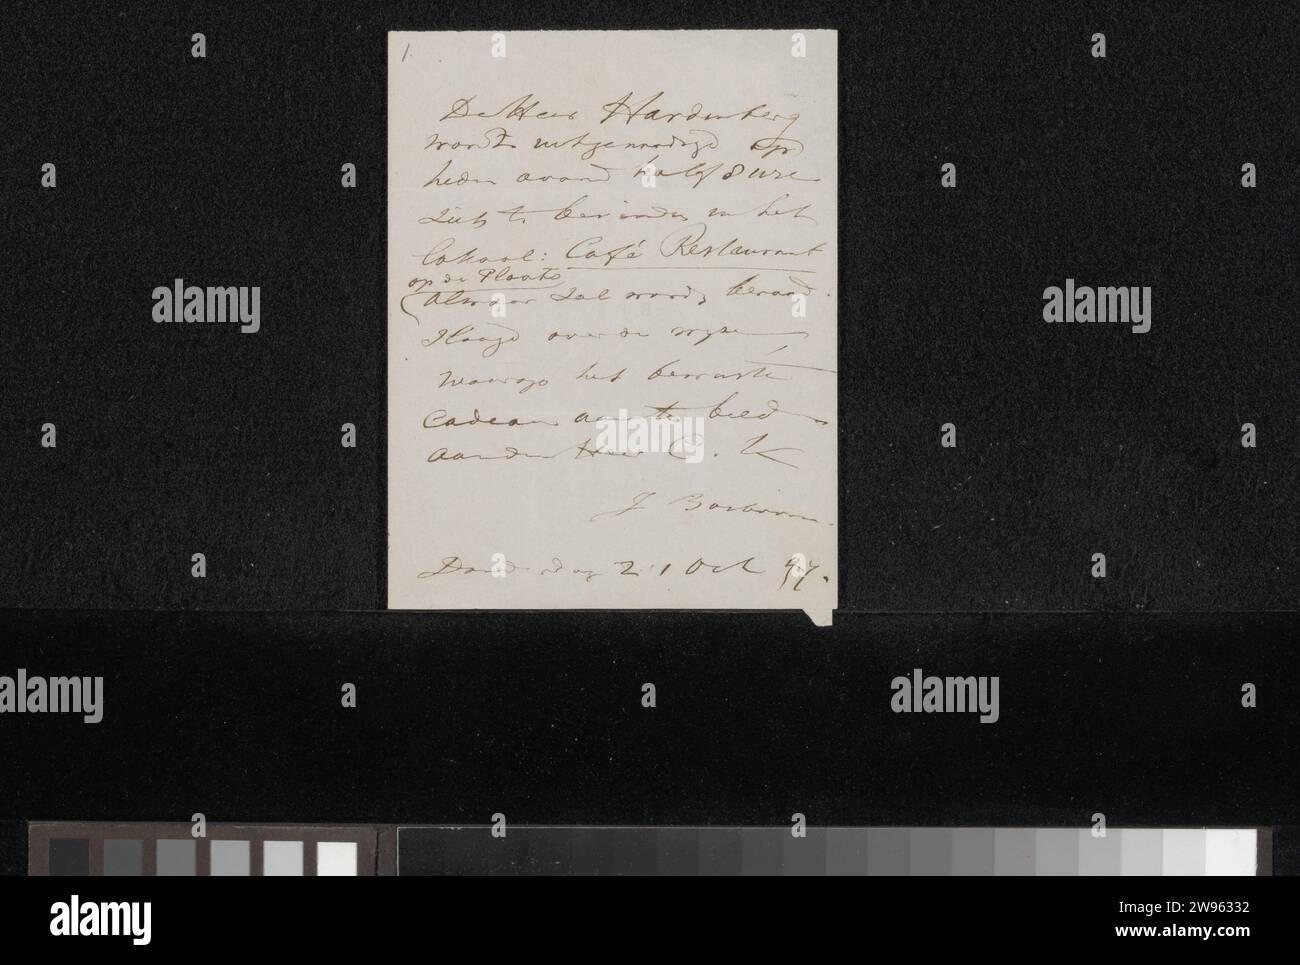 1.
De Heer Hardenberg
wordt uitgenoodigd op
heden avond half 8 ure
Zich te bevinden in het
lokaal: Café Restaurant
op de Plaats
alwaar zal worden beraad-
slaagd over de wijze
waarop het bewuste
cadeau aan te bieden
aan den Heer C. K
J Bosboom
Donderdag 21 Oct 97.
alamy
Image ID: 2W96332
www.alamy.com